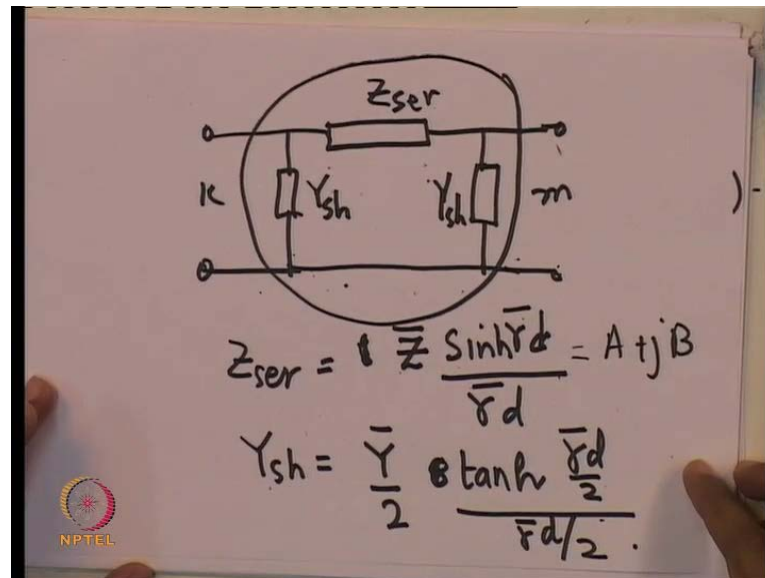 Zser
K Ysh Ysh m ) -
Zser = Z̄ Sinh γ̄d / γ̄d = A + jB
Ysh = Ȳ/2 tanh γ̄d/2 / γ̄d/2 .
NPTEL